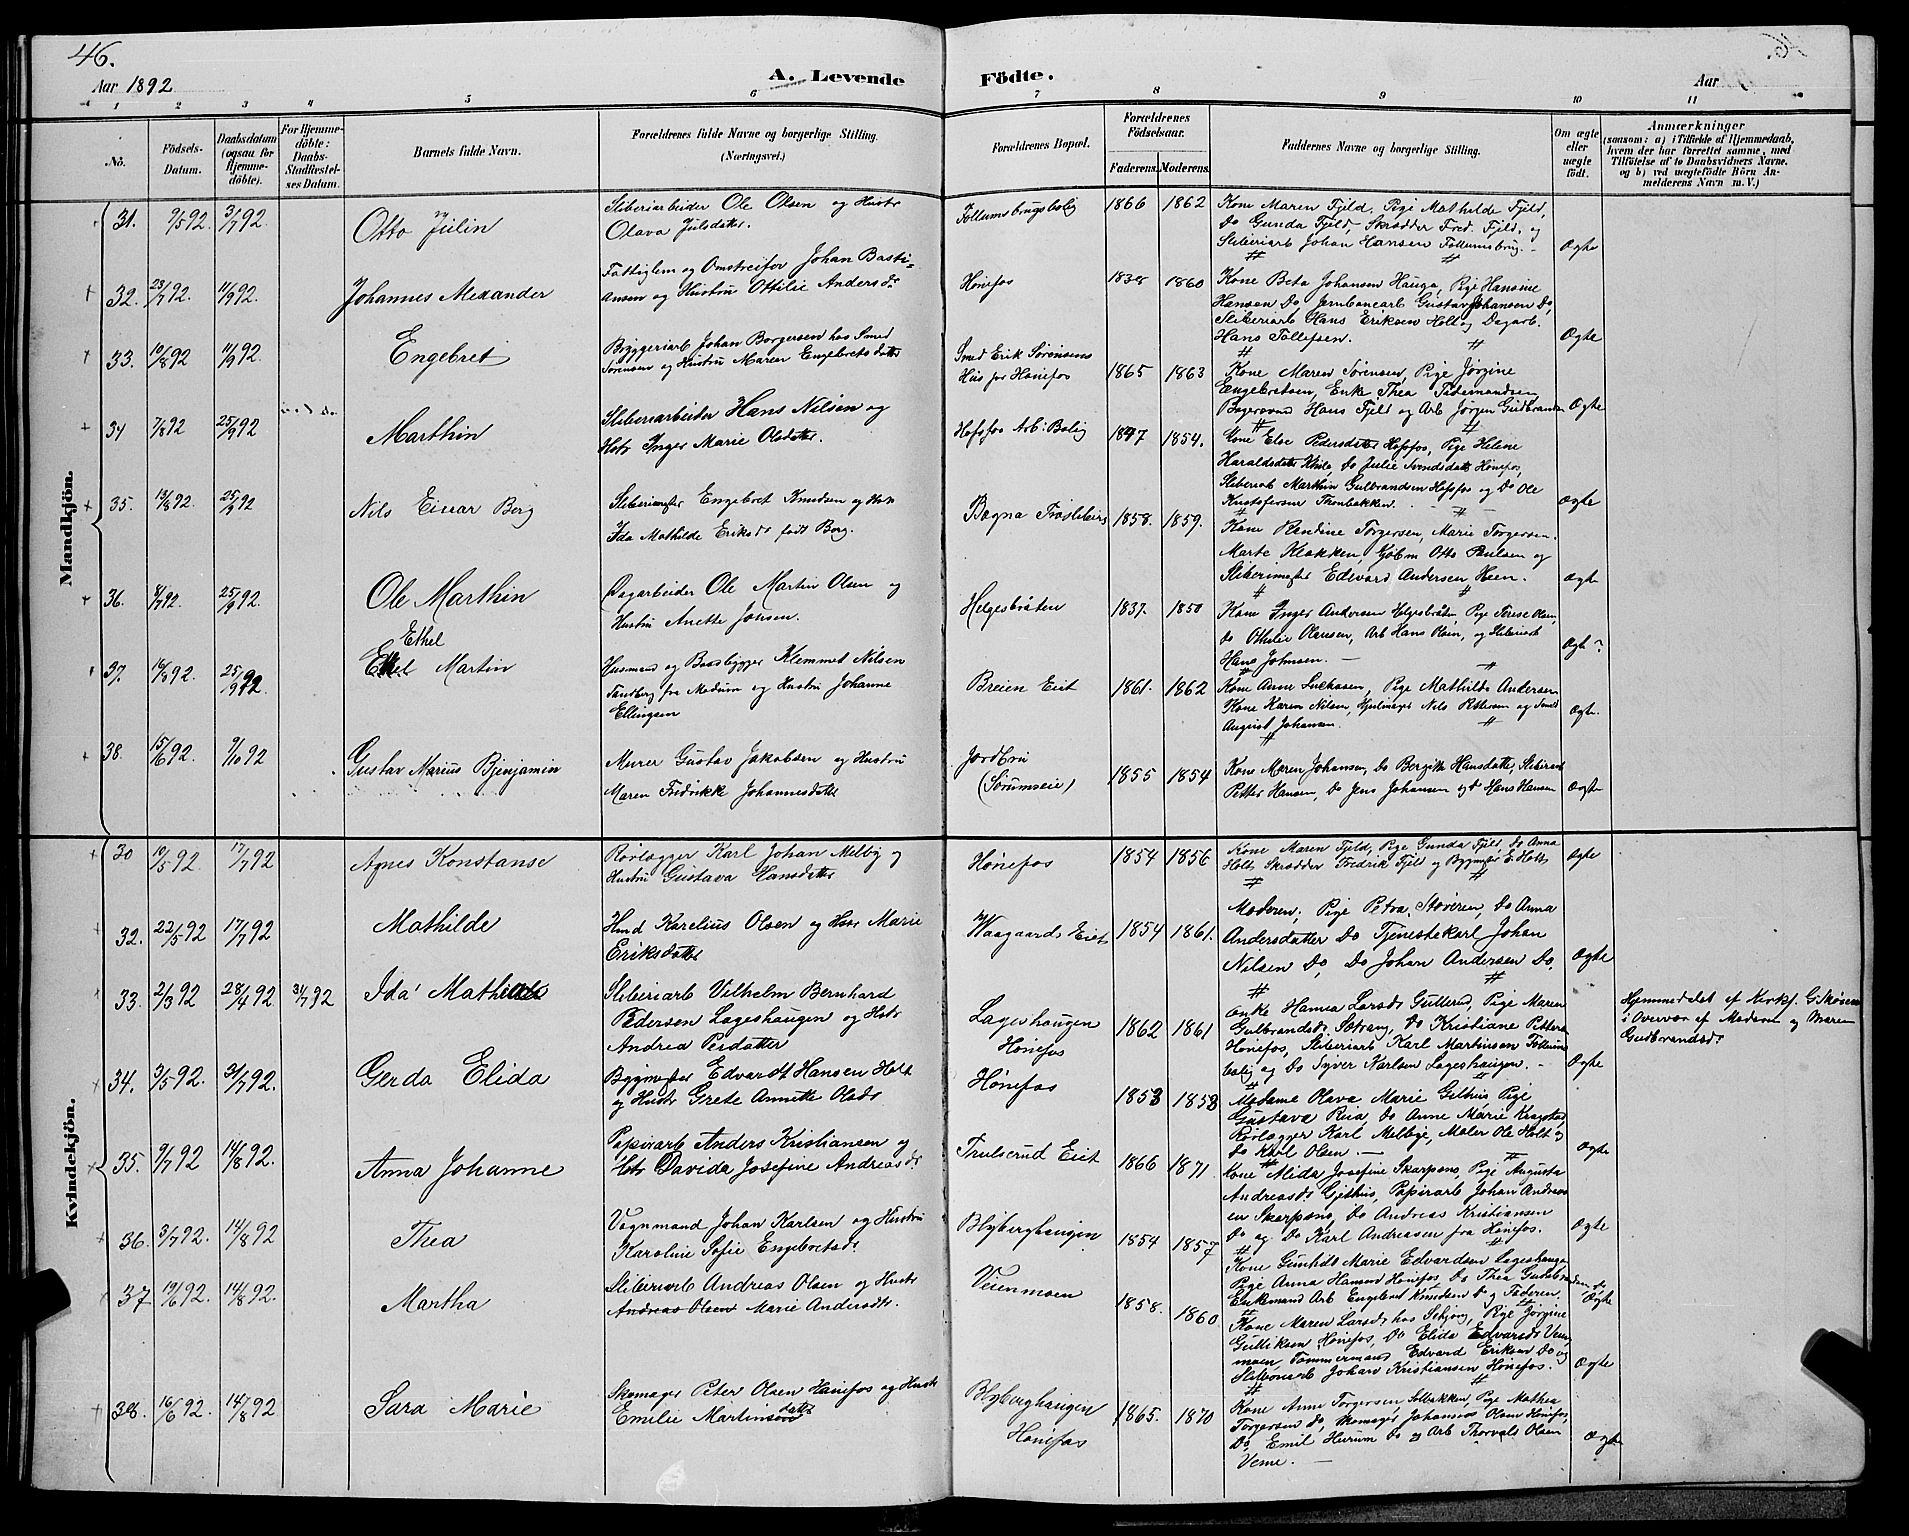 46.
Aar 1892
A. Levende Födte.
Aar
1 2 3 4 5 6 7 8 9 10 11
No.
Födsels-Datum.
Daabsdatum (ogsaa for Hjemme-döbte).
For Hjemme-döbte: Daabs-Stadfæstel-ses Datum.
Barnets fulde Navn.
Forældrenes fulde Navne og borgerlige Stilling. (Næringsvei.)
Forældrenes Bopæl.
Forældrenes Födselsaar.
Faderens. Moderens.
Faddernes Navne og borgerlige Stilling.
Om ægte eller uægte födt.
Anmærkninger
(saasom: a) i Tilfælde af Hjemmedaab, hvem der har forrettet samme, med Tilföielse af to Daabsvidners Navne, og b) ved uægtefödte Börn Anmelderens Navn m. V.)
Mandkjön.
31. 9/5 92. 3/7 92. Otto Julin
Sliberiarbeider Ole Olsen og Hustr
Olava Julsdatter.
Follumsbrugsbolig 1866 1862
Kone Maren Fjeld, Pige Mathilde Fjeld,
Do Gunda Fjeld Skrædder Fred. Fjeld, og
Sliberiarb Johan Hansen Follumsbrug. Ægte
32. 23/7 92. 11/9 92. Johannes Alexander
Fattiglem og Omstreifer Johan Basti-
ansen og Hustru Ottilie Andersdr
Hönefos 1838 1860
Kone Beta Johansen Hauga, Pige Hansine
Hansen Do, Jernbanearb Gustav Johansen Do,
Sliberiarb Hans Eriksen Holt og Dagarb.
Hans Tollefsen. Ægte
33. 10/8 92 11/9 92. Engebret
Bryggeriarb Johan Borgersen hos Smed
Sörensen og Hustru Maren Engebretsdatter
Smed Erik Sörensens
Hus pr Hönefos 1865 1863
Kone Maren Sörensen, Pige Jörgine
Engebretsen, Enke Thea Tidemandsen
Bagersvend Hans Fjeld og Arb Jörgen Gudbransen Ægte
34 7/8 92 25/9 92 Marthin
Sliberiarbeider Hans Nilsen og
Hstr Inger Marie Olsdatter.
Hofsfos Arb: Bolig 1847 1854.
Kone Else Pedersdatter Hofsfos, Pige Helene
Haraldsdatter, Do Julie Svendsdatter Hönefos,
Sliberiarb Marthin Gulbrandsen Hofsfos og Do Ole
Kristofersen Thonbakken. Ægte
35. 13/8 92. 25/9 92 Nils Einar Berg
Sliberimester Engebret Knudsen og Hstr
Ida Mathilde Eriksdr født Berg.
Bægna Træsliberi 1858. 1859.
Kone Randine Torgersen, Marie Torgersen.
Marte Klækken, Gjbm Otto Paulsen og
Sliberimester Edevard Andersen Heen. Ægte
36. 4/7 92. 25/9 92. Ole Marthin
Dagarbeider Ole Martin Olsen og
Hustru Anette Jonsen.
Helgesbråten 1837. 1850
Kone Inger Andersen Helgesbråten, Pige Terese Olsen,
Do Othilie Olausen, Arb Hans Olsen, og Sliberiarb
Hans Johnsen. Ægte
37. 16/8 92. 25/9 92 Ethel
Ethel Martin
Husmand og Baadbygger Klemmet Nilsen
Sandberg fra Modum og Hustru Johanne
Ellingsen
Breien Eiet 1861. 1862
Kone Anne Isachsen, Pige Mathilde Andersen
Kone Karen Nilsen, Hjulmager Nils Pettersen og Smed
August Johansen. Ægte.
38. 15/6 92. 9/10 92 Gustav Marius Bjenjamin
Murer Gustav Jakobsen og Hustru
Maren Fredrikke Johannesdatter
Jordbru
(Sörumseie) 1855 1854
Kone Maren Johansen, Do Bergith Hansdatter, Sliberiarb
Petter Hansen, Do Jens Johansen og Do Hans Hansen Ægte
Kvindekjön.
30 10/5 92. 17/7 92 Agnes Konstanse
Rörlægger Karl Johan Melby og
Hustru Gustava Hansdatter
Hönefos 1854 1856
Kone Maren Fjeld, Pige Gunda Fjeld, Do Anna
Holt, Skrædder Fredrik Fjeld og Bygmester E. Holt Ægte
32. 22/5 92 17/7 92 Mathilde
Hmd Karelius Olsen og Hstr Marie
Eriksdatter
Waagaards Eiet 1854 1861.
Moderen, Pige Petra Støveren, Do Anna
Andersdatter Do Tjenestekarl Johan
Nilsen Do, Do Johan Andersen Do. Ægte
33. 2/3 92 28/4 92 31/7 92 Ida Mathilde
Sliberiarb Vilhelm Bernhard
Pedersen Lageshaugen og Hstr
Andrea Persdatter
Lageshaugen
Hönefos 1862 1861
Enke Hanna Larsdr Gullerud, Pige Maren
Gulbrandsdr Sætrang, Do Kristiane Pettersen
Hönefos, Sliberiarb Karl Martinsen Follums-
bolig og Do Syver Karlsen Lageshaugen. Ægte
Hjemmedøbt af Kirkes. G. Skøien
i Overvær af Moderen og Maren
Gudbrandsdr
34. 3/5 92. 31/7 92. Gerda Elida
Bygmester Edvardt Hansen Holt
og Hustr Grete Annette Olsdr
Hönefos 1853 1858
Madame Olava Marie Gjethus, Pige
Gustava Rua, Do Anne Marie Kragstad,
Rörlægger Karl Melbye, Maler Ole Holt og
Do Karl Olsen Ægte
35. 9/7 92 14/8 92. Anna Johanne
Papirarb Anders Kristiansen og
Hstr Davida Josefine Andreasdr
Trulserud Eiet 1866 1871.
Kone Alida Josefine Skarpsno, Pige Augusta
Andreasdr Gjethus, Papirarb Johan Andreas-
en Skarpsno, Do Andreas Kristiansen
Do og Do Karl Andreasen fra Hönefos. Ægte
36. 3/7 92. 14/8 92 Thea
Vognmand Johan Karlsen og Hustru
Karoline Sofie Engebretsdr
Blybergshaugen 1854 1857
Kone Gunhild Marie Edvardsen Lageshaugen
Pige Anna Hansen Hönefos, Do Thea Gulbrandsen Do,
Enkemand Arb Engebret Knudsen Do og Faderen. Ægte
37 19/6 92. 14/8 92. Martha
Sliberiarb Andreas Olsen og Hustr
Andreas Olsen Marie Andersdtr.
Veienmoen 1858. 1860
Kone Maren Larsdr hos Schjong, Pige Jörgine
Gulliksen Hönefos, Do Elida Edvardsdr Veien-
moen, Tømmermand Edvard Eriksen Do og
Sliberiarb Johan Kristiansen Hönefos. Ægte
38. 16/6 92. 14/8 92 Sara Marie
Skomager Peter Olsen Hönefos og Hustr
Emilie Martinsdatter
Blybergshaugen
Hönefos 1865. 1870
Kone Anne Torgersen Solbakken, Pige Mathea
Torgersen Do, Skomager Johannes Olsen Hönefos,
Do Emil Hurum Do og Arb Thorvald Olsen
Veme. Ægte